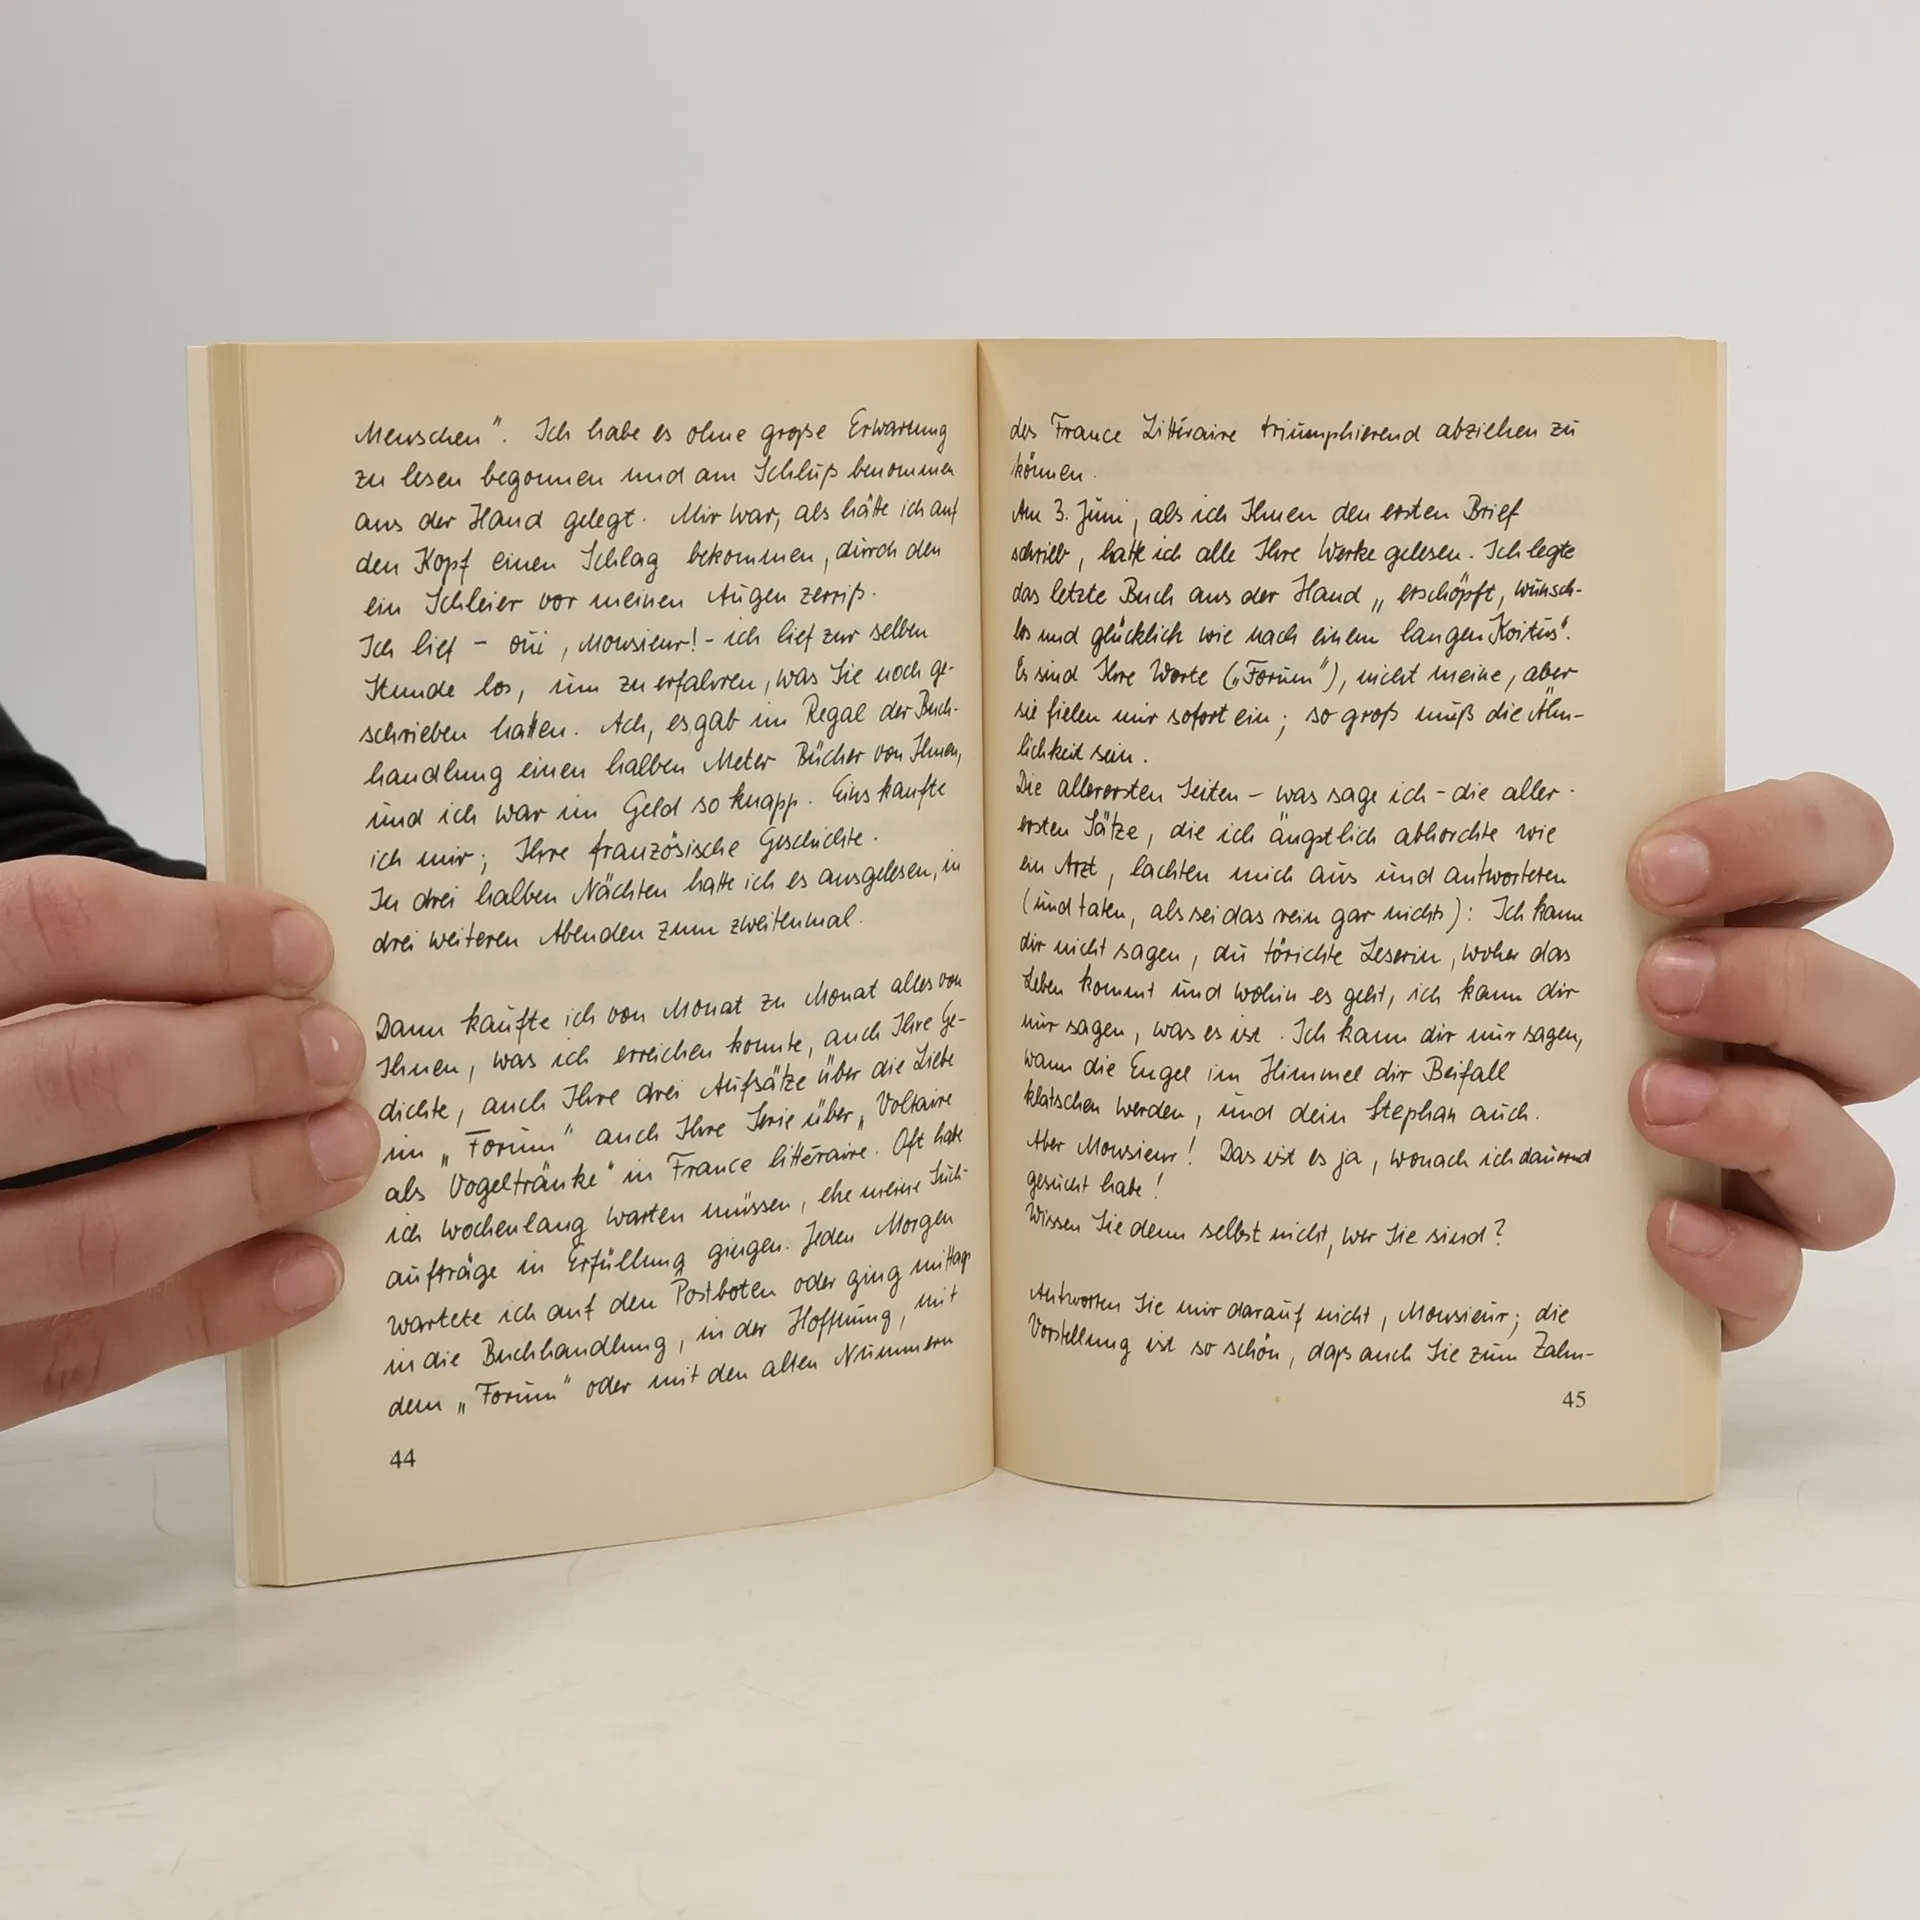 Menschen". Ich habe es ohne große Erwartung
zu lesen begonnen und am Schluß benommen
aus der Hand gelegt. Mir war, als hätte ich auf
den Kopf einen Schlag bekommen, durch den
ein Schleier vor meinen Augen zerriß.
Ich lief – oui, Monsieur! – ich lief zur selben
Stunde los, um zu erfahren, was Sie noch ge-
schrieben hatten. Ach, es gab im Regal der Buch-
handlung einen halben Meter Bücher von Ihnen,
und ich war im Geld so knapp. Eins kaufte
ich mir; Ihre französische Geschichte.
In drei halben Nächten hatte ich es ausgelesen, in
drei weiteren Abenden zum zweitenmal.
Dann kaufte ich von Monat zu Monat alles von
Ihnen, was ich erreichen konnte, auch Ihre Ge-
dichte, auch Ihre drei Aufsätze über die Liebe
im „Forum" auch Ihre Serie über „Voltaire
als Vogeltränke" in France littéraire. Oft habe
ich wochenlang warten müssen, ehe meine Such-
aufträge in Erfüllung gingen. Jeden Morgen
wartete ich auf den Postboten oder ging mittags
in die Buchhandlung, in der Hoffnung, mit
dem „Forum" oder mit den alten Nummern
44
des France Littéraire triumphierend abziehen zu
können.
Am 3. Juni, als ich Ihnen den ersten Brief
schrieb, hatte ich alle Ihre Werke gelesen. Ich legte
das letzte Buch aus der Hand „erschöpft, wunsch-
los und glücklich wie nach einem langen Koitus".
Es sind Ihre Worte („Forum"), nicht meine, aber
sie fielen mir sofort ein; so groß muß die Ähn-
lichkeit sein.
Die allerersten Seiten – was sage ich – die aller-
ersten Sätze, die ich ängstlich abhorchte wie
ein Arzt, lachten mich aus und antworteten
(und taten, als sei das rein gar nichts): Ich kann
dir nicht sagen, du törichte Leserin, woher das
Leben kommt und wohin es geht, ich kann dir
nur sagen, was es ist. Ich kann dir nur sagen,
wann die Engel im Himmel dir Beifall
klatschen werden, und dein Stephan auch.
Aber Monsieur! Das ist es ja, wonach ich dauernd
gesucht habe!
Wissen Sie denn selbst nicht, wer Sie sind?
Antworten Sie mir darauf nicht, Monsieur; die
Vorstellung ist so schön, daß auch Sie zum Zahn-
45